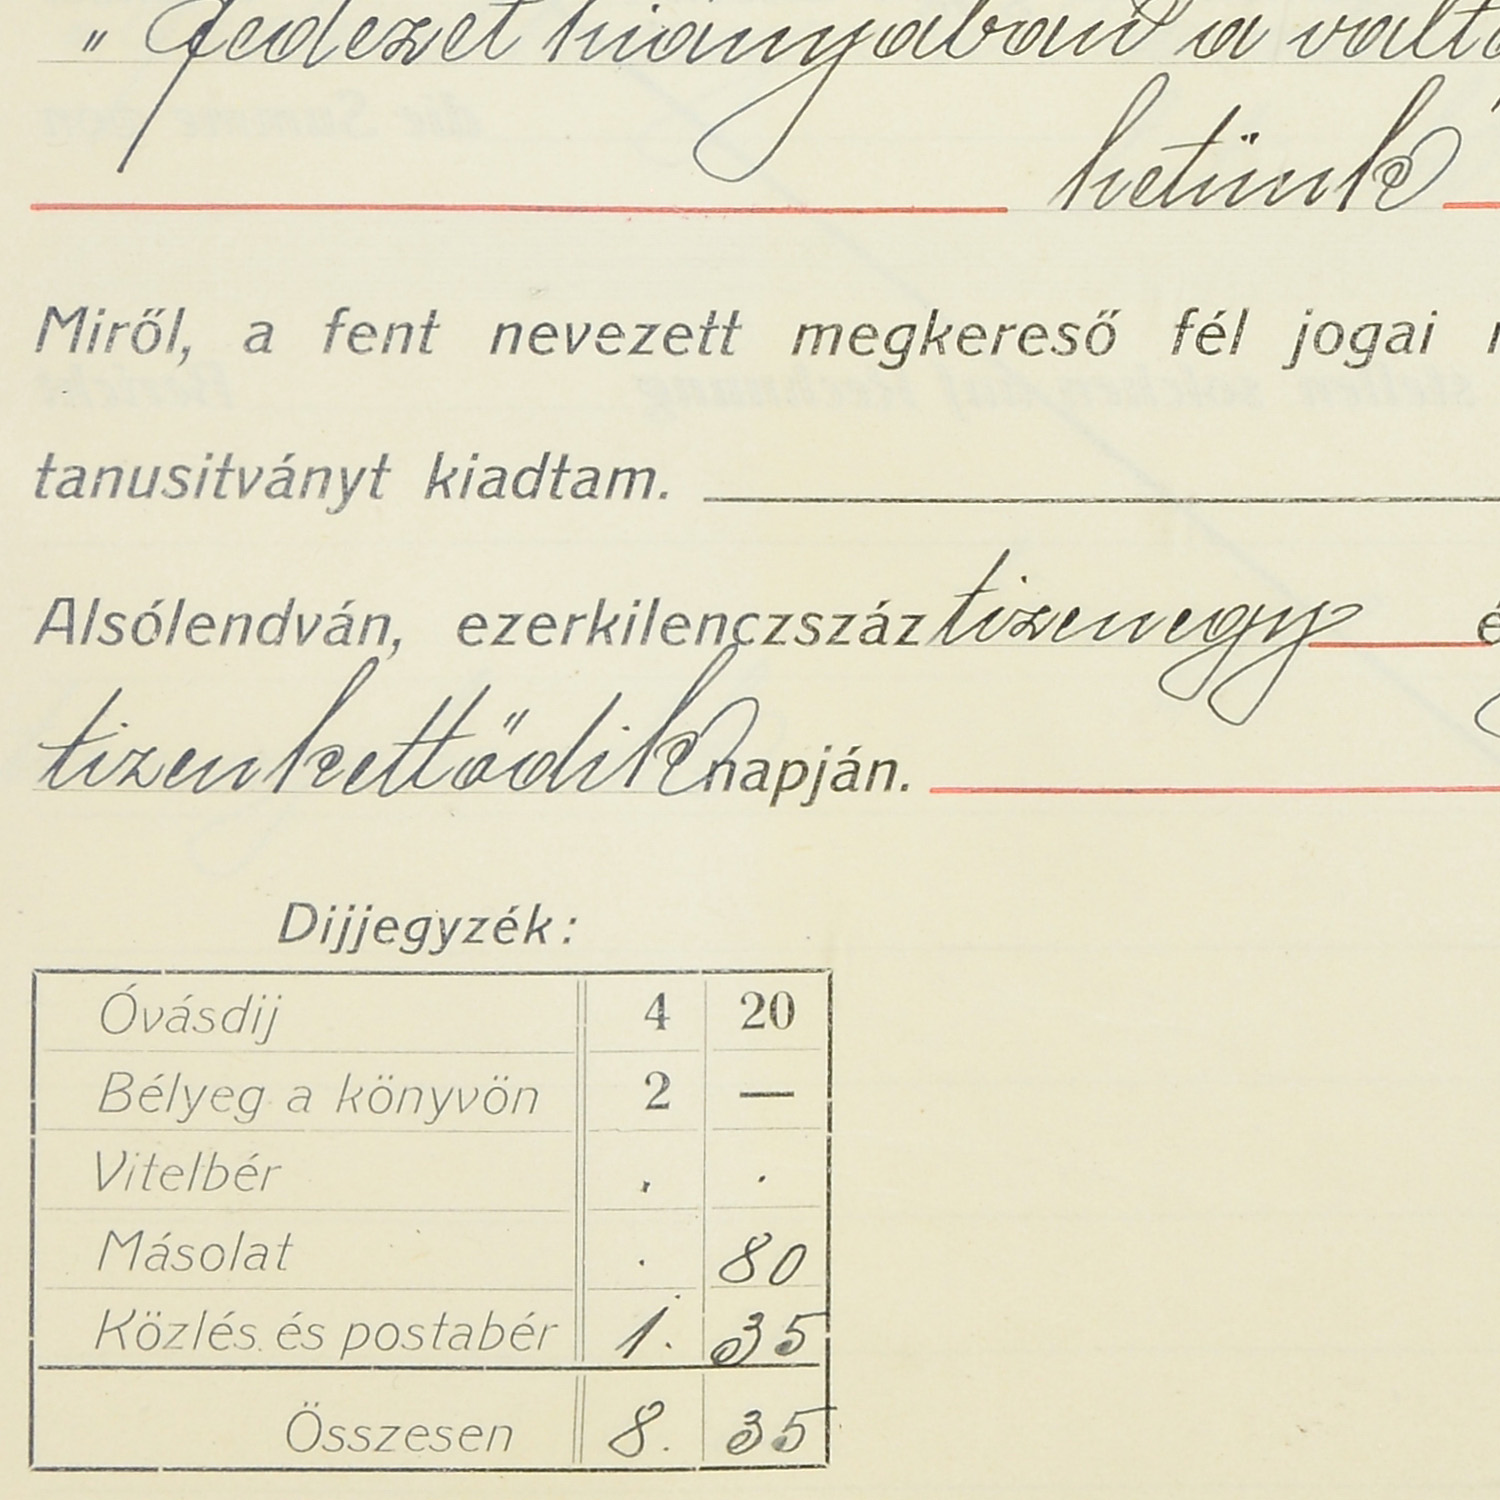 „ fedezet hiányában a vált
hetünk
Miről, a fent nevezett megkereső fél jogai
tanusitványt kiadtam.
Alsólendván, ezerkilenczszáz tizenegy é
tizenkettődik napján.
Dijjegyzék:
Óvásdij 4 20
Bélyeg a könyvön 2 —
Vitelbér . .
Másolat . 80
Közlés és postabér 1. 35
Összesen 8. 35